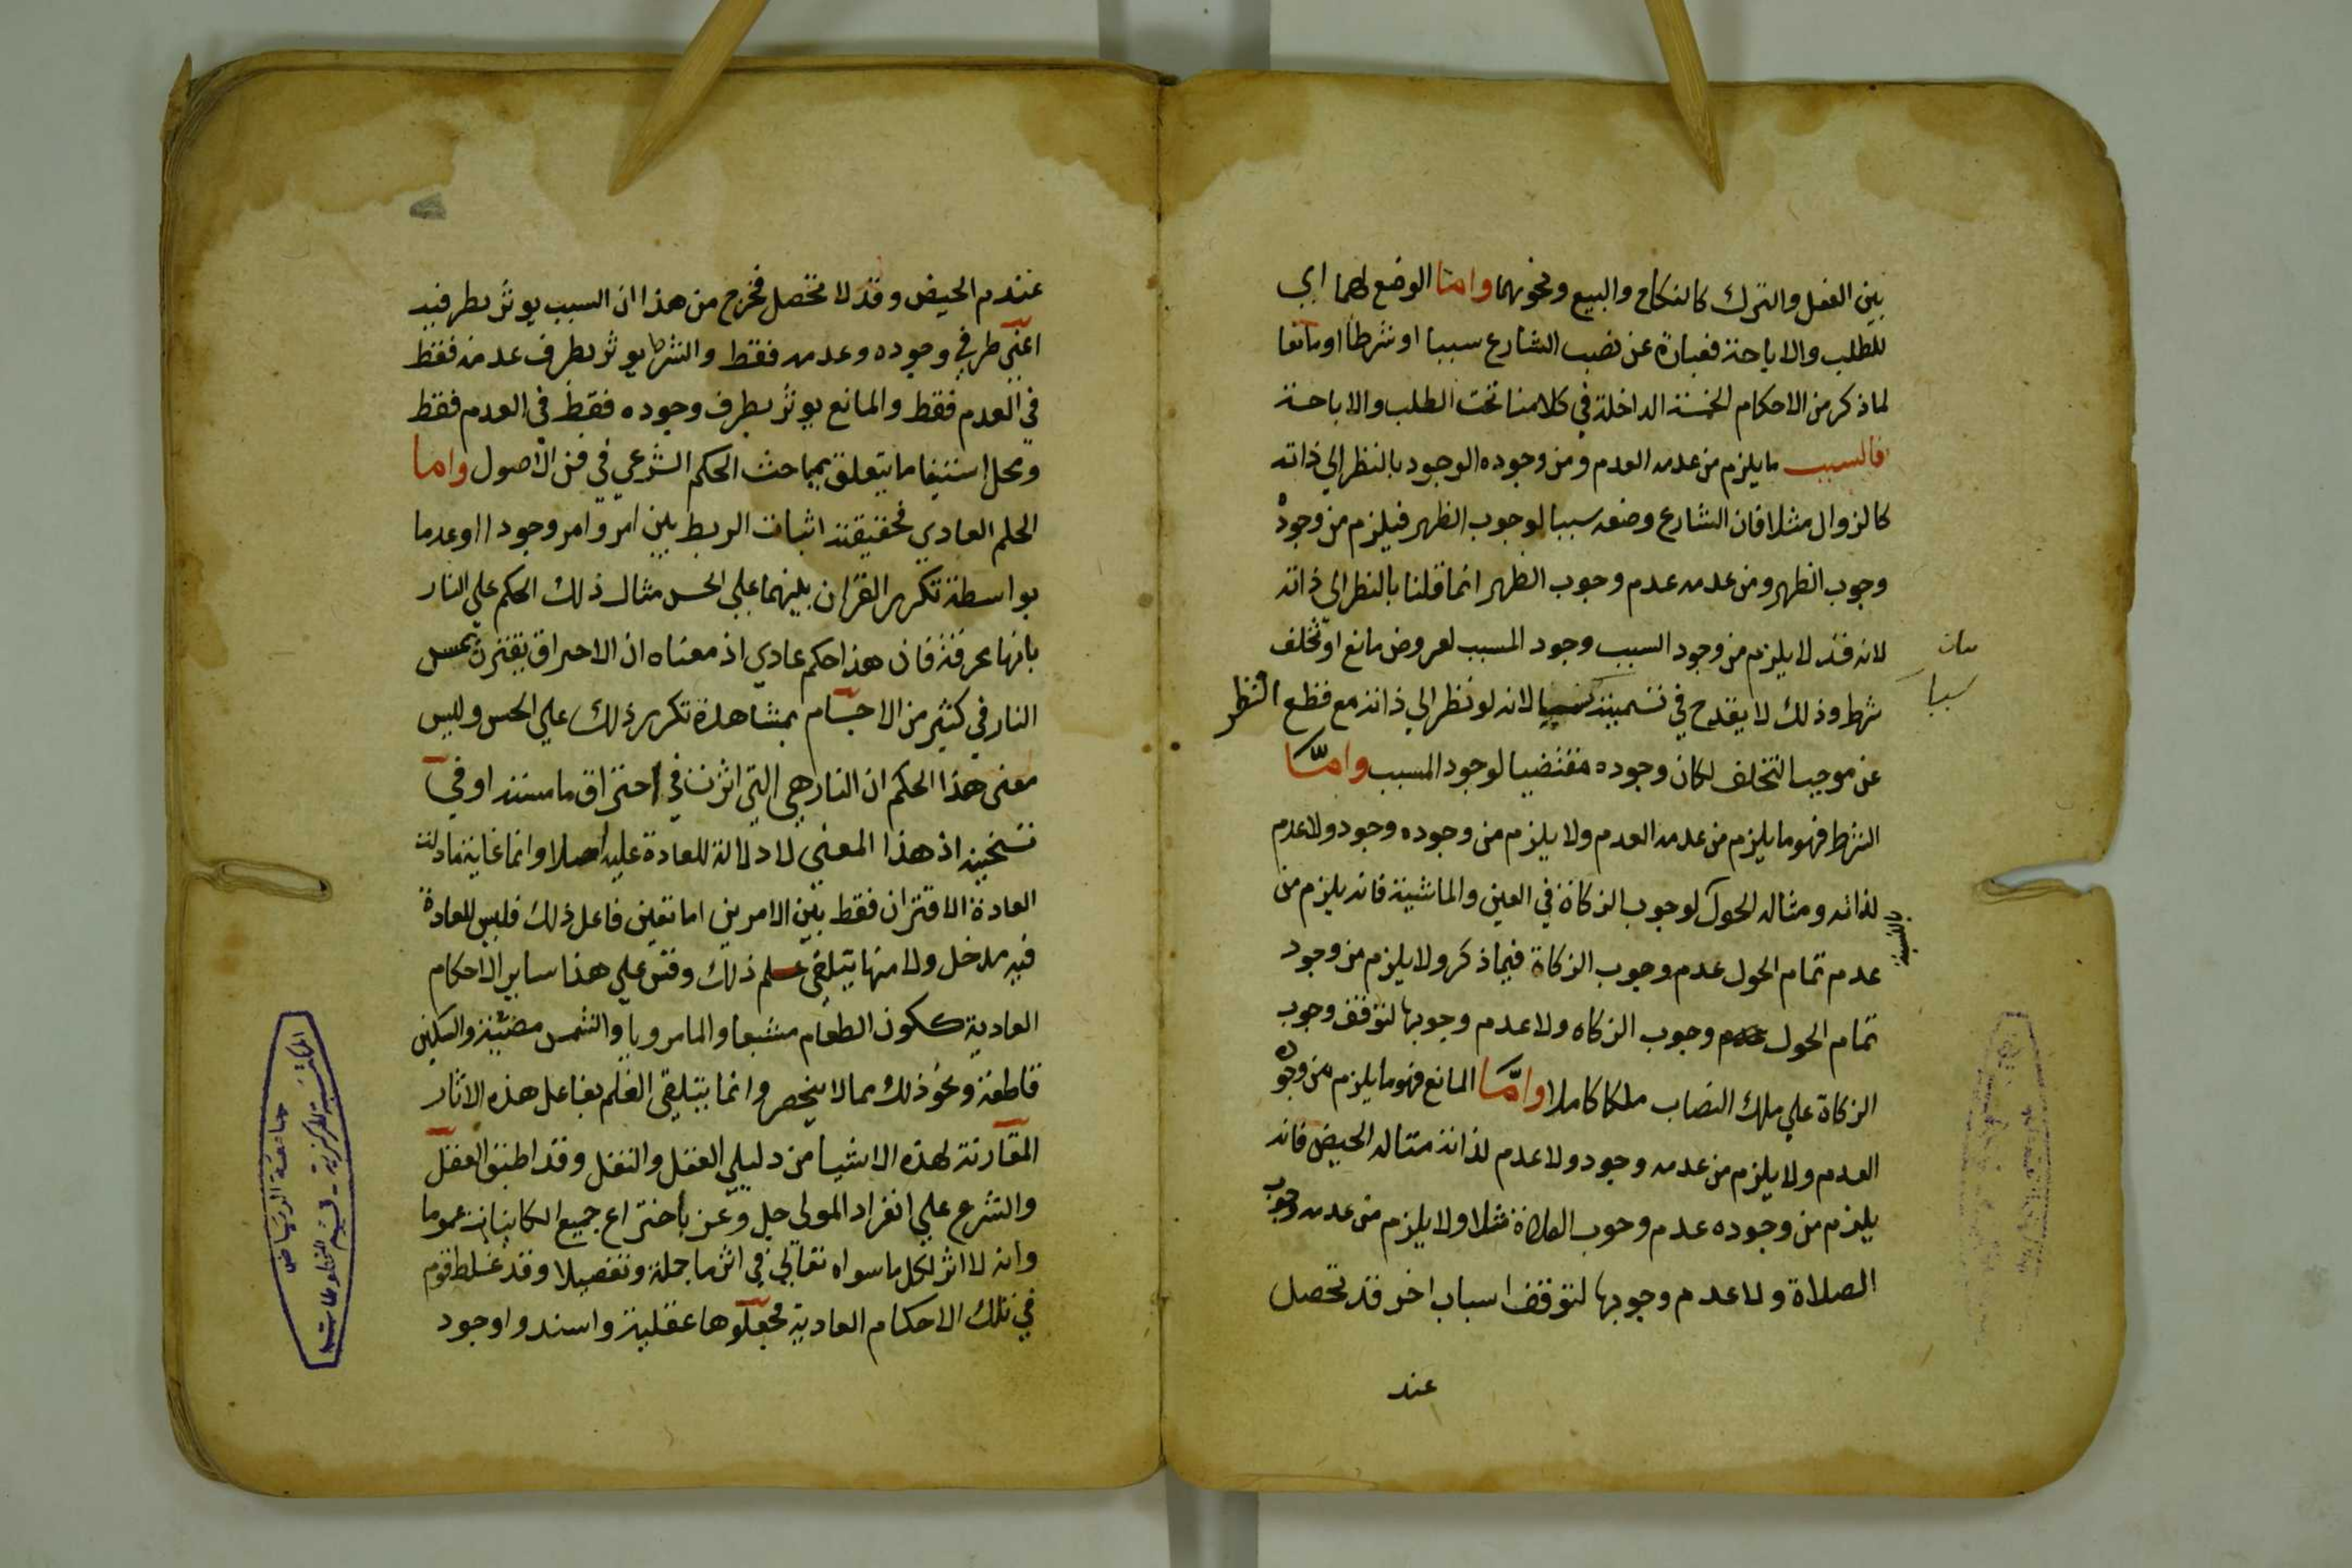 بين الفعل والترك كالنكاح والبيع ونحوهما واما الوضع لهما اي
للطلب والاباحة فعبارة عن نصب الشارع سببا او شرطا او مانعا
لما ذكر من الاحكام الخمسة الداخلة في كلامنا تحت الطلب والاباحة
فالسبب ما يلزم من عدمه العدم ومن وجوده الوجود بالنظر الي ذاته
كالزوال مثلا فان الشارع وضعه سببا لوجوب الظهر فيلزم من وجوده
وجوب الظهر ومن عدمه عدم وجوب الظهر انما قلنا بالنظر الي ذاته
لانه قد لا يلزم من وجود السبب وجود المسبب لعروض مانع او تخلف
شرط وذلك لا يقدح في تسميته سببا لانه لو نظر الي ذاته مع قطع النظر
بيان
سببا
عن موجب التخلف لكان وجوده مقتضيا لوجود المسبب واما
الشرط فهو ما يلزم من عدمه العدم ولا يلزم من وجوده وجود ولا عدم
لذاته ومثاله الحول لوجوب الزكاة في العين والماشية فانه يلزم من
بالنسبة
عدم تمام الحول عدم وجوب الزكاة فيما ذكر ولا يلزم من وجود
تمام الحول وجوب الزكاه ولا عدم وجوبها لتوقف وجوب
الزكاة علي ملك النصاب ملكا كاملا واما المانع فهو ما يلزم من وجوده
العدم ولا يلزم من عدمه وجود ولا عدم لذاته مثاله الحيض فانه
يلزم من وجوده عدم وجوب الصلاة مثلا ولا يلزم من عدمه وجوب
الصلاة ولا عدم وجوبها لتوقف اسباب اخر قد تحصل
عند
عند عدم الحيض وقد لا تحصل فخرج من هذا ان السبب يوثر بطرفيه
اعني طرفي وجوده وعدمه فقط والشرط يوثر بطرف عدمه فقط
في العدم فقط والمانع يوثر بطرف وجوده فقط في العدم فقط
ومحل استيفا ما يتعلق بمباحث الحكم الشرعي في فن الاصول واما
الحكم العادي فحقيقته اثبات الربط بين امر وامر وجودا او عدما
بواسطة تكرر القران بينهما علي الحس مثال ذلك الحكم علي النار
بانها محرقة فان هذا حكم عادي اذ معناه ان الاحراق يقترن بمس
النار في كثير من الاجسام بمشاهدة تكرر ذلك علي الحس وليس
معنى هذا الحكم ان النار هي التي اثرت في احتراق ما مسته او في
تسخينه اذ هذا المعني لا دلالة للعادة عليه اصلا وانما غاية ما دلت
العادة الاقتران فقط بين الامرين اما تعين فاعل ذلك فليس للعادة
فيه مدخل ولا منها يتلقى علم ذلك وقس علي هذا ساير الاحكام
العادية ككون الطعام مشبعا والما مرويا والشمس مضيئة والسكين
قاطعة ونحو ذلك مما لا ينحصر وانما يتلقى العلم بفاعل هذه الاثار
المقارنة لهذه الاشيا من دليلي العقل والنقل وقد اطبق العقل
والشرع علي انفراد المولى جل وعز باختراع جميع الكاينات عموما
وانه لا اثر لكل ما سواه تعالي في اثر ما جملة وتفصيلا وقد غلط قوم
في تلك الاحكام العادية فجعلوها عقلية واسندوا وجود
جامعة الرياض
المكتبة المركزية - قسم المخطوطات